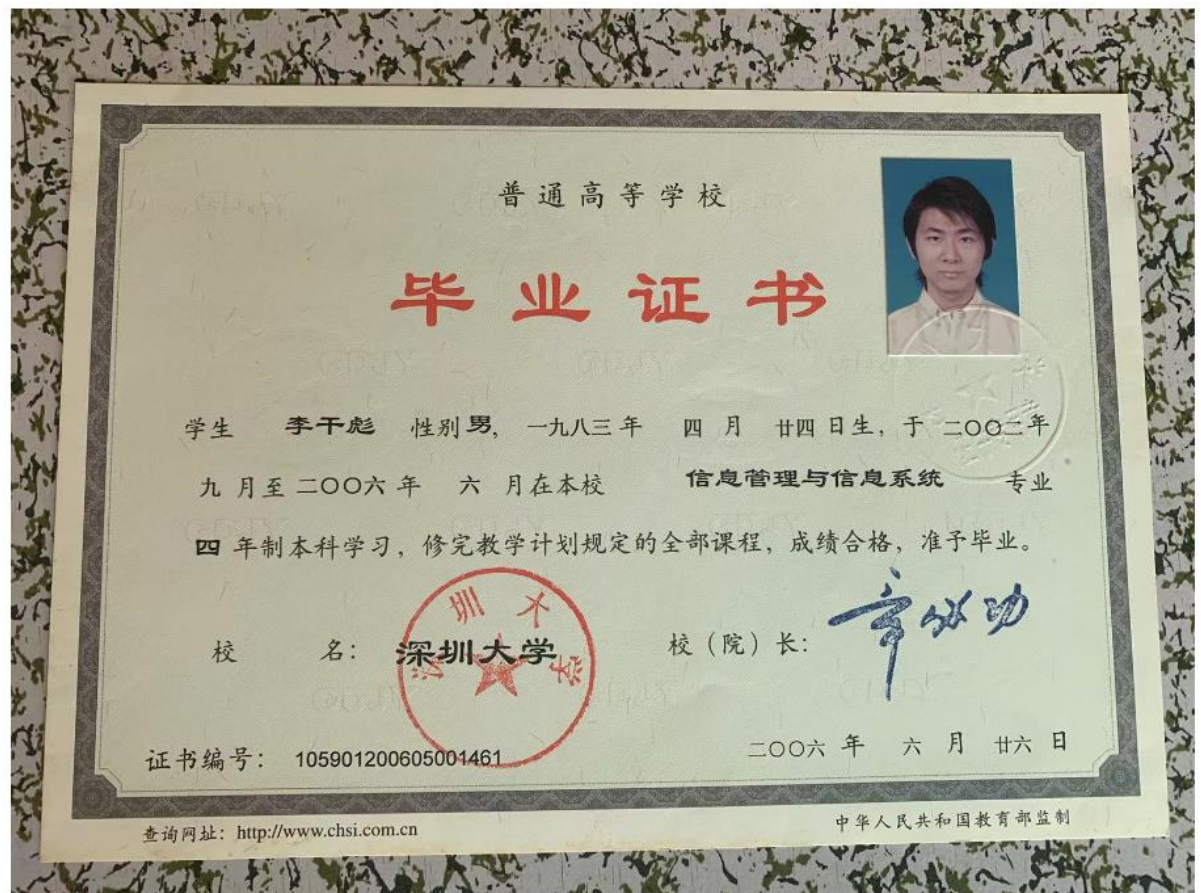 普通高等学校
毕业证书
学生 李干彪 性别 男, 一九八三年 四月 廿四日生, 于 二〇〇二年
九月至 二〇〇六年 六月在本校 信息管理与信息系统 专业
四年制本科学习, 修完教学计划规定的全部课程, 成绩合格, 准予毕业。
深圳大学
校 名: 深圳大学 校（院）长: 章必功
证书编号: 105901200605001461 二〇〇六年 六月 廿六日
查询网址: http://www.chsi.com.cn 中华人民共和国教育部监制